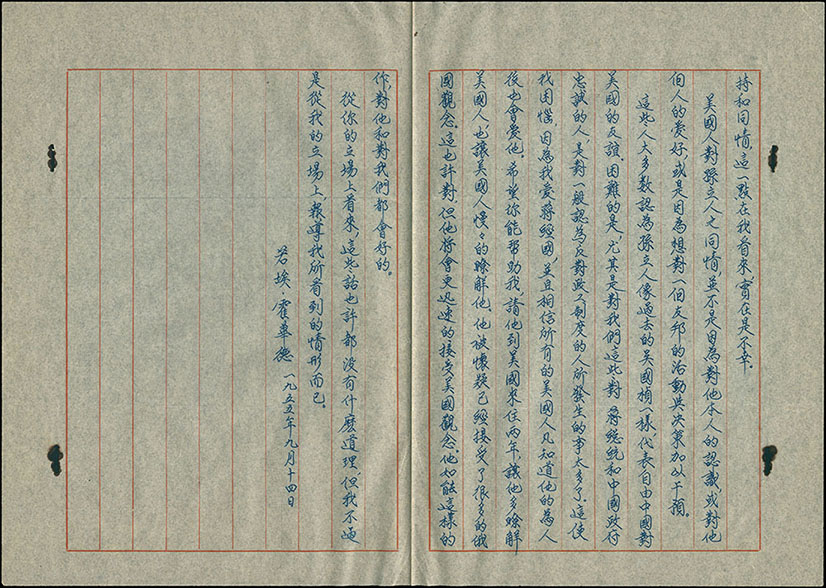 持和同情，這一點在我看來，實在是不幸．
美國人對孫立人之同情，並不是因為對他本人的認識，或對他
個人的愛好，或是因為想對一個友邦的活動與決策加以干預。
這些人大多數認為孫立人像過去的吳國楨一樣代表自由中國對
美國的友誼．困難的是，尤其是對我們這些對 蔣總統和中國政府
忠誠的人，是對一般認為反對政工制度的人所發生的事太多了．這使
我困惱，因為我愛蔣經國，並且相信所有的美國人凡知道他的為人
後也會愛他。希望你能幫助我，請他到美國來住兩年，讓他多瞭解
美國人，也讓美國人慢々的瞭解他．他被懷疑已經接受了很多的俄
國觀念．這也許對，但他將會更迅速的接受美國觀念．他如能這樣的
作，對他和對我們都會好的。
從你的立場上看來，這些話也許都沒有什麼道理，但我不過
是從我的立場上，報導我所看到的情形而已。
若埃．霍華德
一九五五年九月十四日